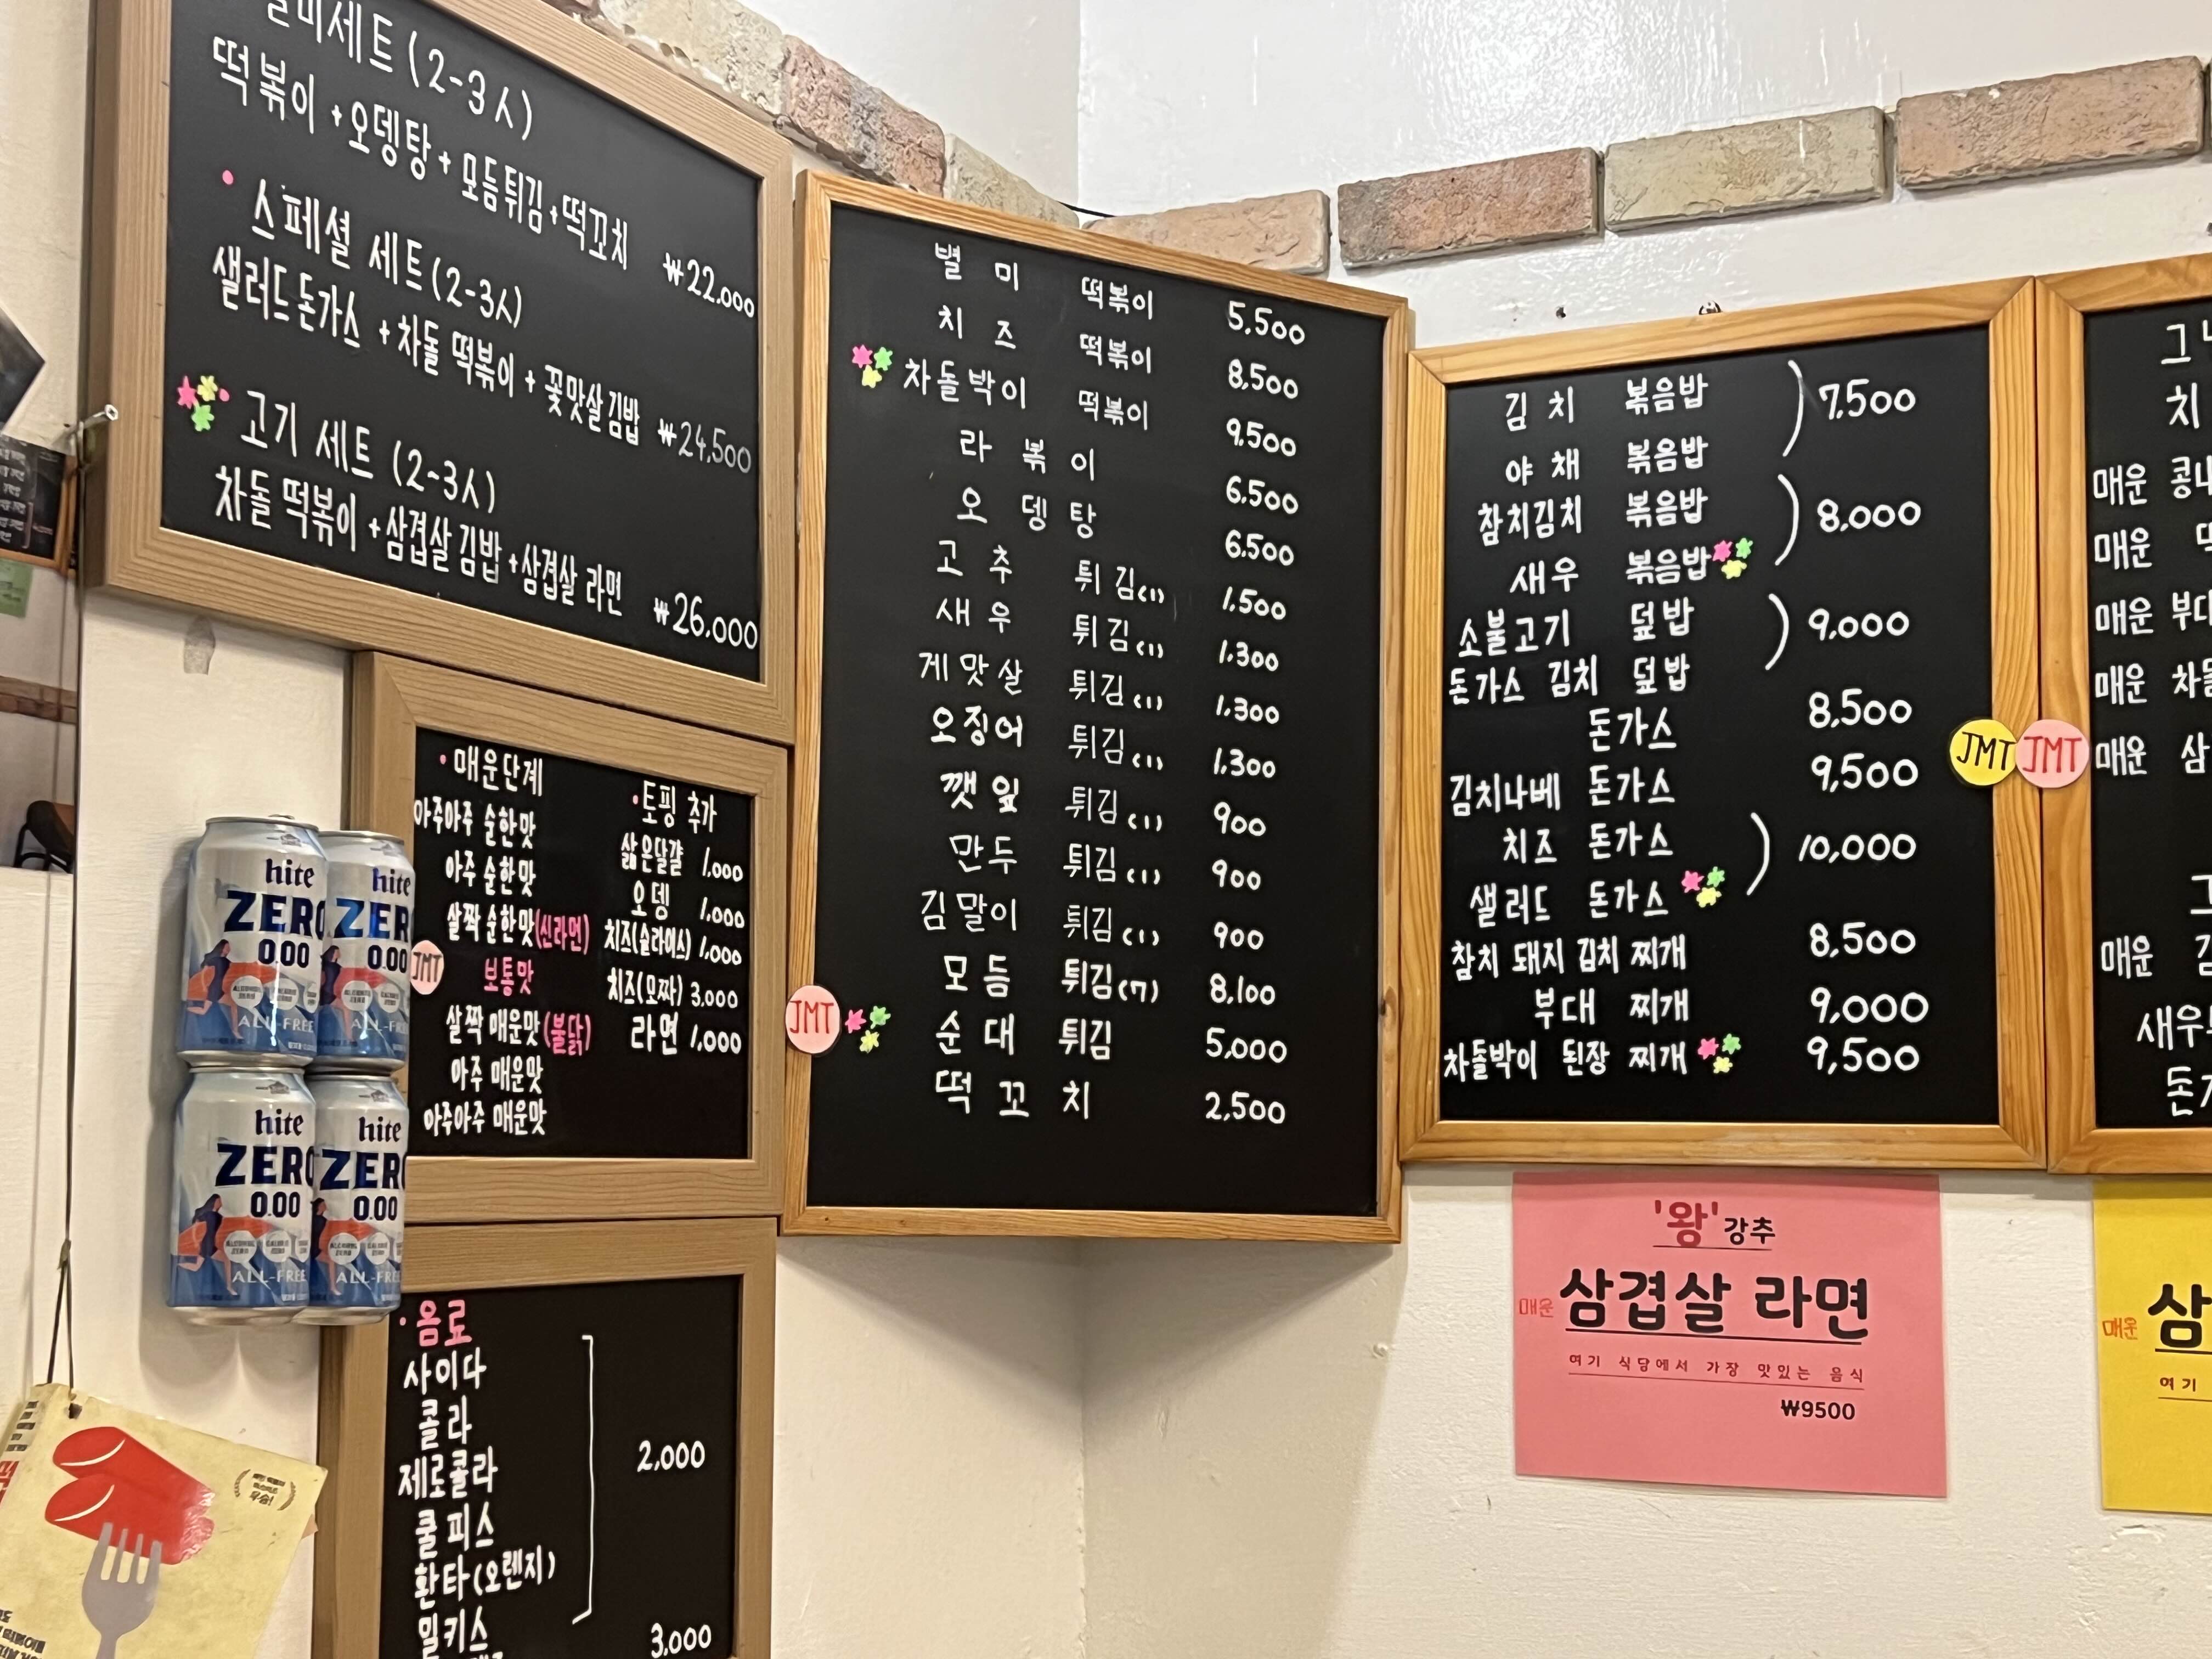 세트(2-3人)
떡볶이+오뎅탕+모듬튀김+떡꼬치 ₩22.000
·스페셜 세트(2-3人)
샐러드돈가스+차돌 떡볶이+꽃맛살김밥 ₩24,500
·고기 세트 (2~3人)
차돌 떡볶이+삼겹살 김밥+삼겹살 라면 ₩26.000
·매운단계
아주아주 순한맛
아주 순한맛
살짝 순한맛(신라면)
보통맛
살짝 매운맛(불닭)
아주 매운맛
아주아주 매운맛
·토핑 추가
삶은달걀 1,000
오뎅 1,000
치즈(슬라이스) 1,000
치즈(모짜) 3,000
라면 1,000
JMT
hite
ZERO
0.00
ALL-FREE
hite
ZERO
0.00
ALL-FREE
hite
ZERO
0.00
ALL-FREE
hite
ZERO
0.00
ALL-FREE
·음료
사이다
콜라
제로콜라
쿨피스
환타(오렌지)
2,000
밀키스 3,000
별미 떡볶이 5,500
치즈 떡볶이 8,500
차돌박이 떡볶이 9,500
라볶이 6,500
오뎅탕 6,500
고추 튀김(1) 1,500
새우 튀김(1) 1,300
게맛살 튀김(1) 1,300
오징어 튀김(1) 1,300
깻잎 튀김(1) 900
만두 튀김(1) 900
김말이 튀김(1) 900
모듬 튀김(7) 8,100
순대 튀김 5,000
떡꼬치 2,500
JMT
김치 볶음밥
야채 볶음밥
7,500
참치김치 볶음밥
새우 볶음밥
8,000
소불고기 덮밥
돈가스 김치 덮밥
9,000
돈가스 8,500
김치나베 돈가스 9,500
치즈 돈가스
샐러드 돈가스
10,000
참치 돼지 김치 찌개 8,500
부대 찌개 9,000
차돌박이 된장 찌개 9,500
JMT
JMT
치
매운 콩나
매운
매운 부대
매운 차돌
매운 삼
매운
새우
'왕'강추
매운 삼겹살 라면
여기 식당에서 가장 맛있는 음식
₩9500
매운 삼
여기
우승!